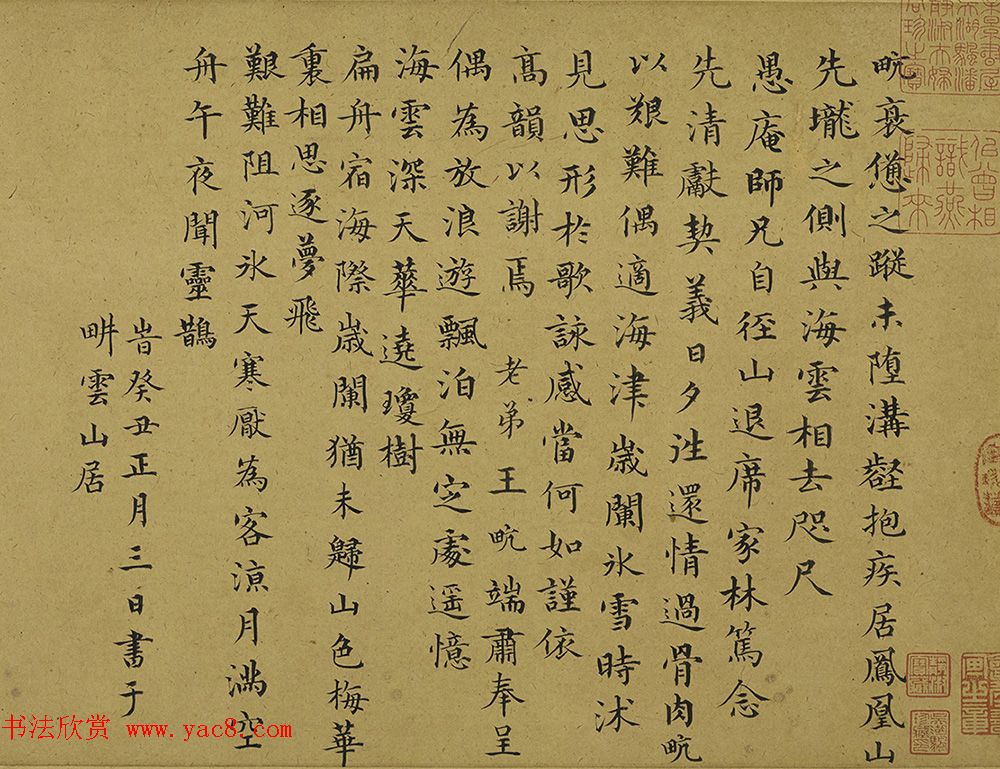 畹衰憊之蹤未墮溝壑抱疾居鳳凰山
先壠之側與海雲相去咫尺
愚庵師兄自徑山退席家林篤念
先清獻契義日夕往還情過骨肉畹
以艱難偶適海津歲闌氷雪時沭
見思形於歌詠感當何如謹依
高韻以謝焉 老弟王畹端肅奉呈
偶為放浪遊飄泊無定處遥憶
海雲深天華遶瓊樹
扁舟宿海際歲闌猶未歸山色梅華
裏相思逐夢飛
艱難阻河氷天寒厭為客涼月滿空
舟午夜聞靈鵲
旹癸丑正月三日書于
畊雲山居
书法欣赏 www.yac8.com